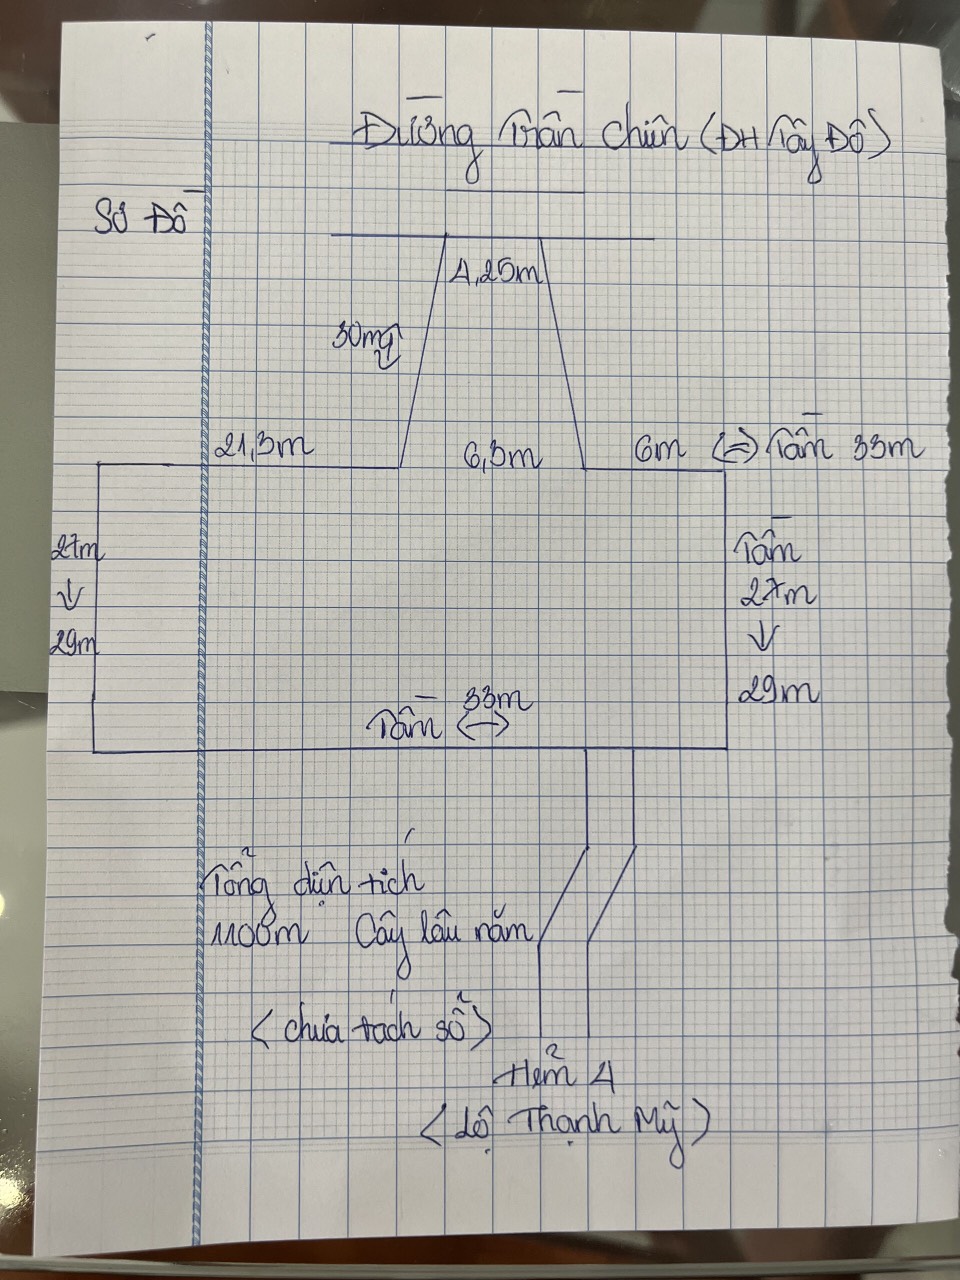 Đường Trần Chiên (ĐH Tây Đô)
Sơ Đồ
4,25m
30m
21,3m
6,3m
6m (⇔) Tầm 33m
27m
↓
29m
Tầm
27m
↓
29m
Tầm 33m
↔
Tổng diện tích
1100m Cây lâu năm
(chưa tách sổ)
Hẻm 4
(Lộ Thạnh Mỹ)